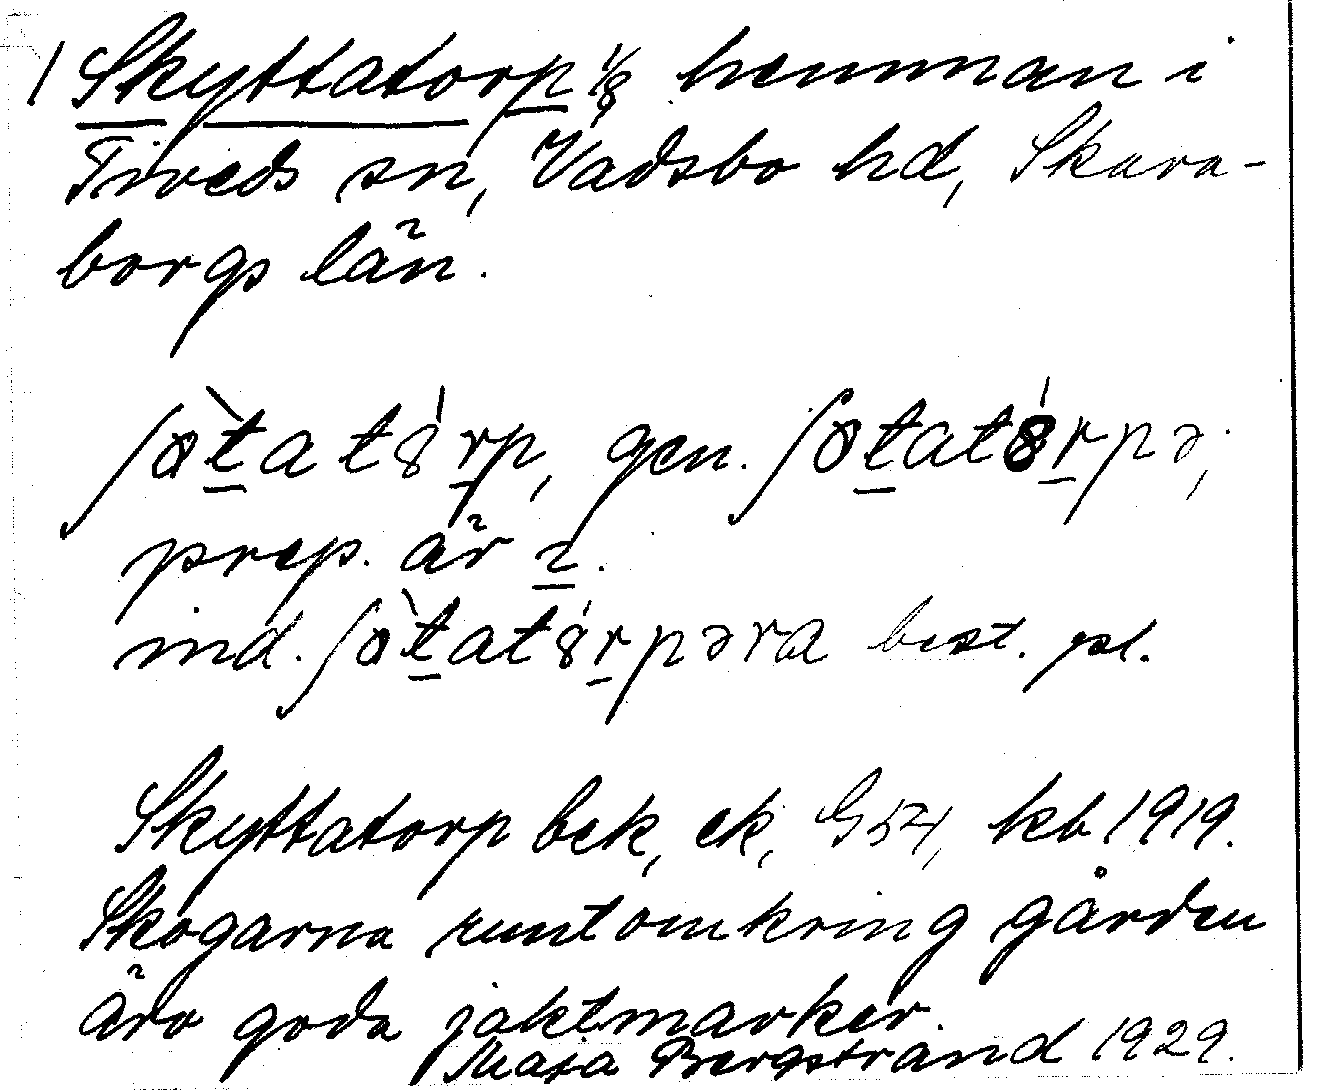 1 Skyttatorp 1/8 hemman i
Tiveds sn, Vadsbo hd, Skara-
borgs län.
gen.
prep. är ı.
ind. best. pl.
Skyttatorp bek, ek, G54, kb 1919.
Skogarna runtomkring gården
äro goda jaktmarker.
Maja Bergstrand 1929.